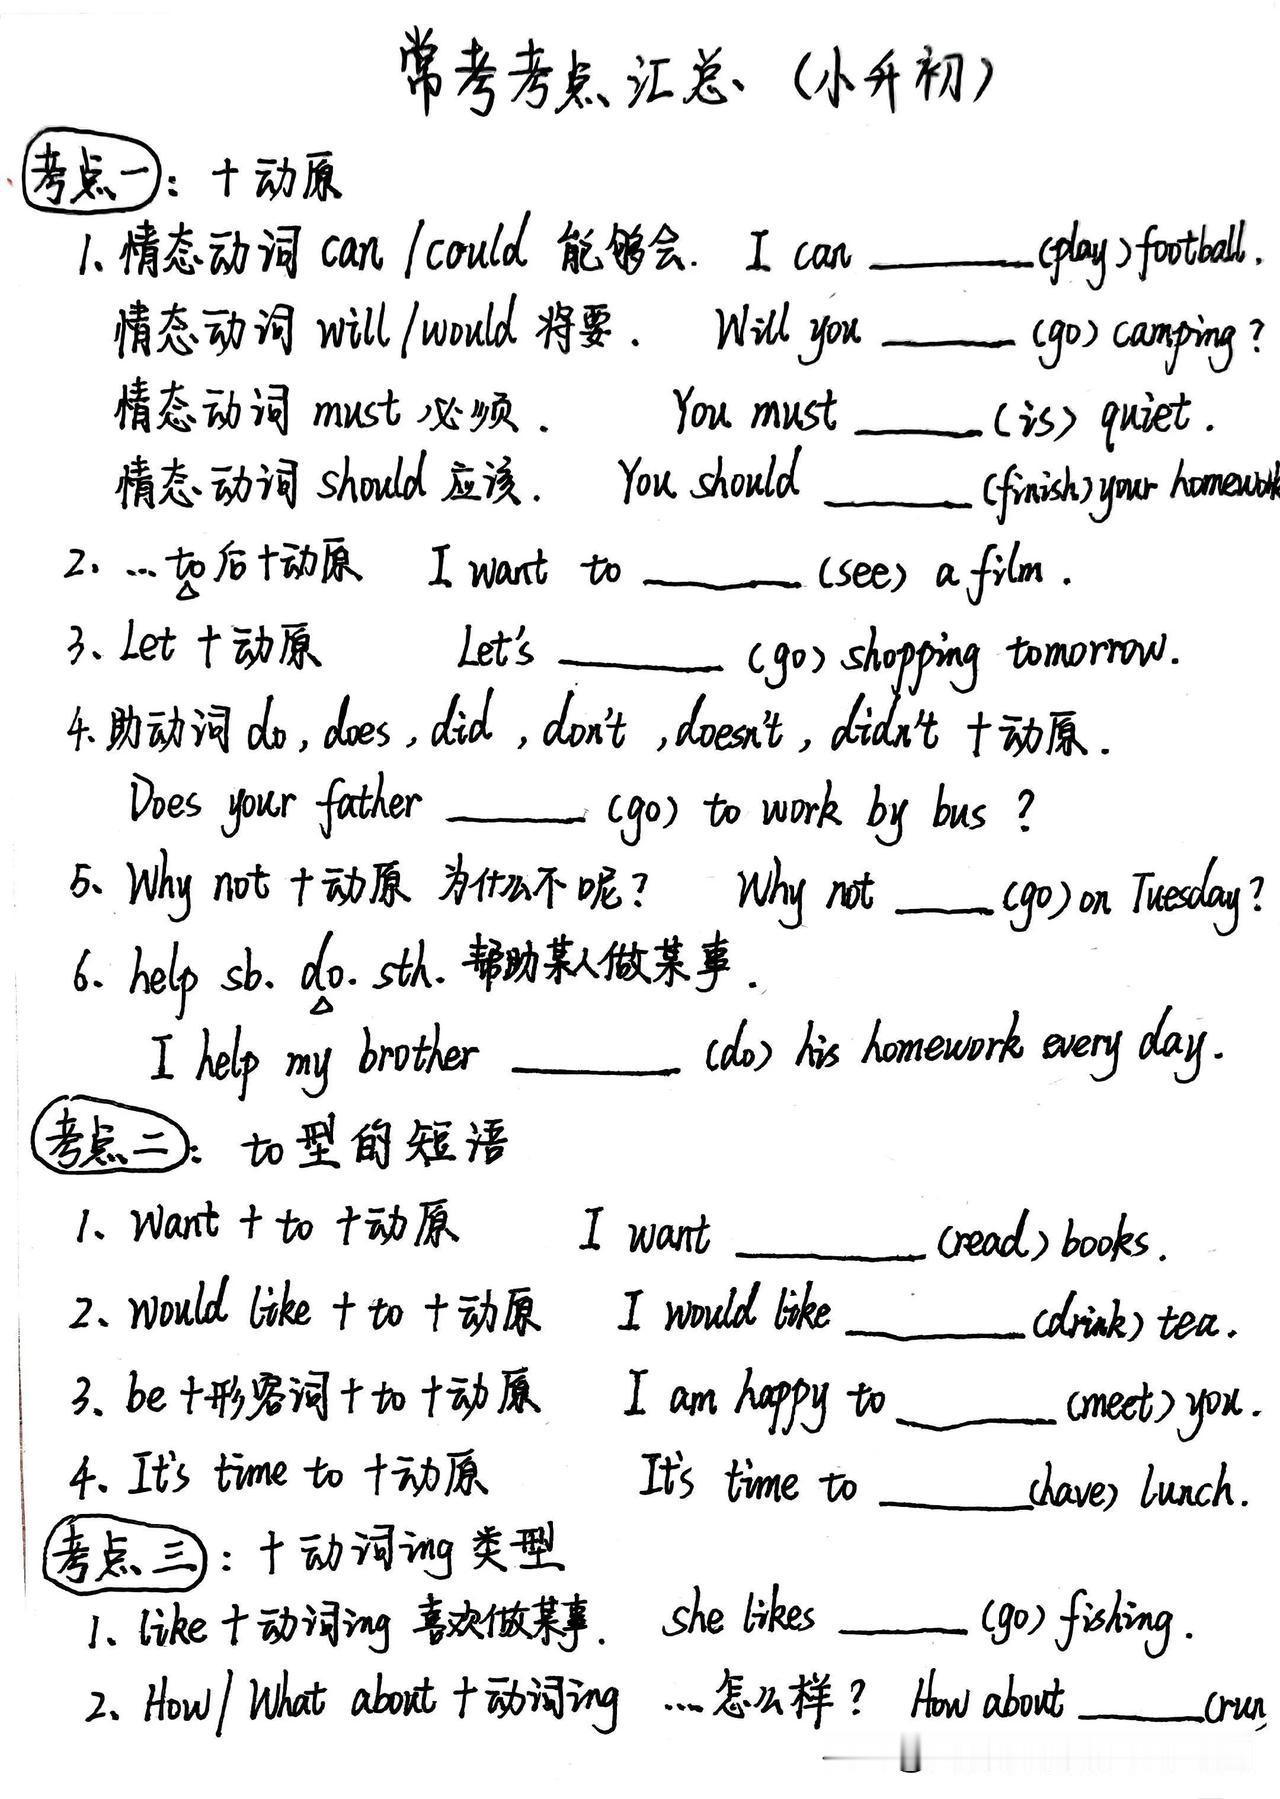 常考考点汇总、（小升初）
考点一：十动原
1、情态动词 can / could 能够会. I can ______ (play) football.
情态动词 will / would 将要. Will you ______ (go) camping?
情态动词 must 必须. You must ______ (is) quiet.
情态动词 should 应该. You should ______ (finish) your homework
2、... to 后十动原 I want to ______ (see) a film.
3、Let 十动原 Let's ______ (go) shopping tomorrow.
4、助动词 do, does, did, don't, doesn't, didn't 十动原.
Does your father ______ (go) to work by bus?
5、Why not 十动原 为什么不呢? Why not ______ (go) on Tuesday?
6、help sb. do. sth. 帮助某人做某事.
I help my brother ______ (do) his homework every day.
考点二：to型的短语
1、Want + to 十动原 I want ______ (read) books.
2、would like + to 十动原 I would like ______ (drink) tea.
3、be 十形容词 + to 十动原 I am happy to ______ (meet) you.
4、It's time to 十动原 It's time to ______ (have) lunch.
考点三：十动词ing类型
1、like 十动词ing 喜欢做某事. she likes ______ (go) fishing.
2、How / What about 十动词ing ...怎么样? How about ______ (run